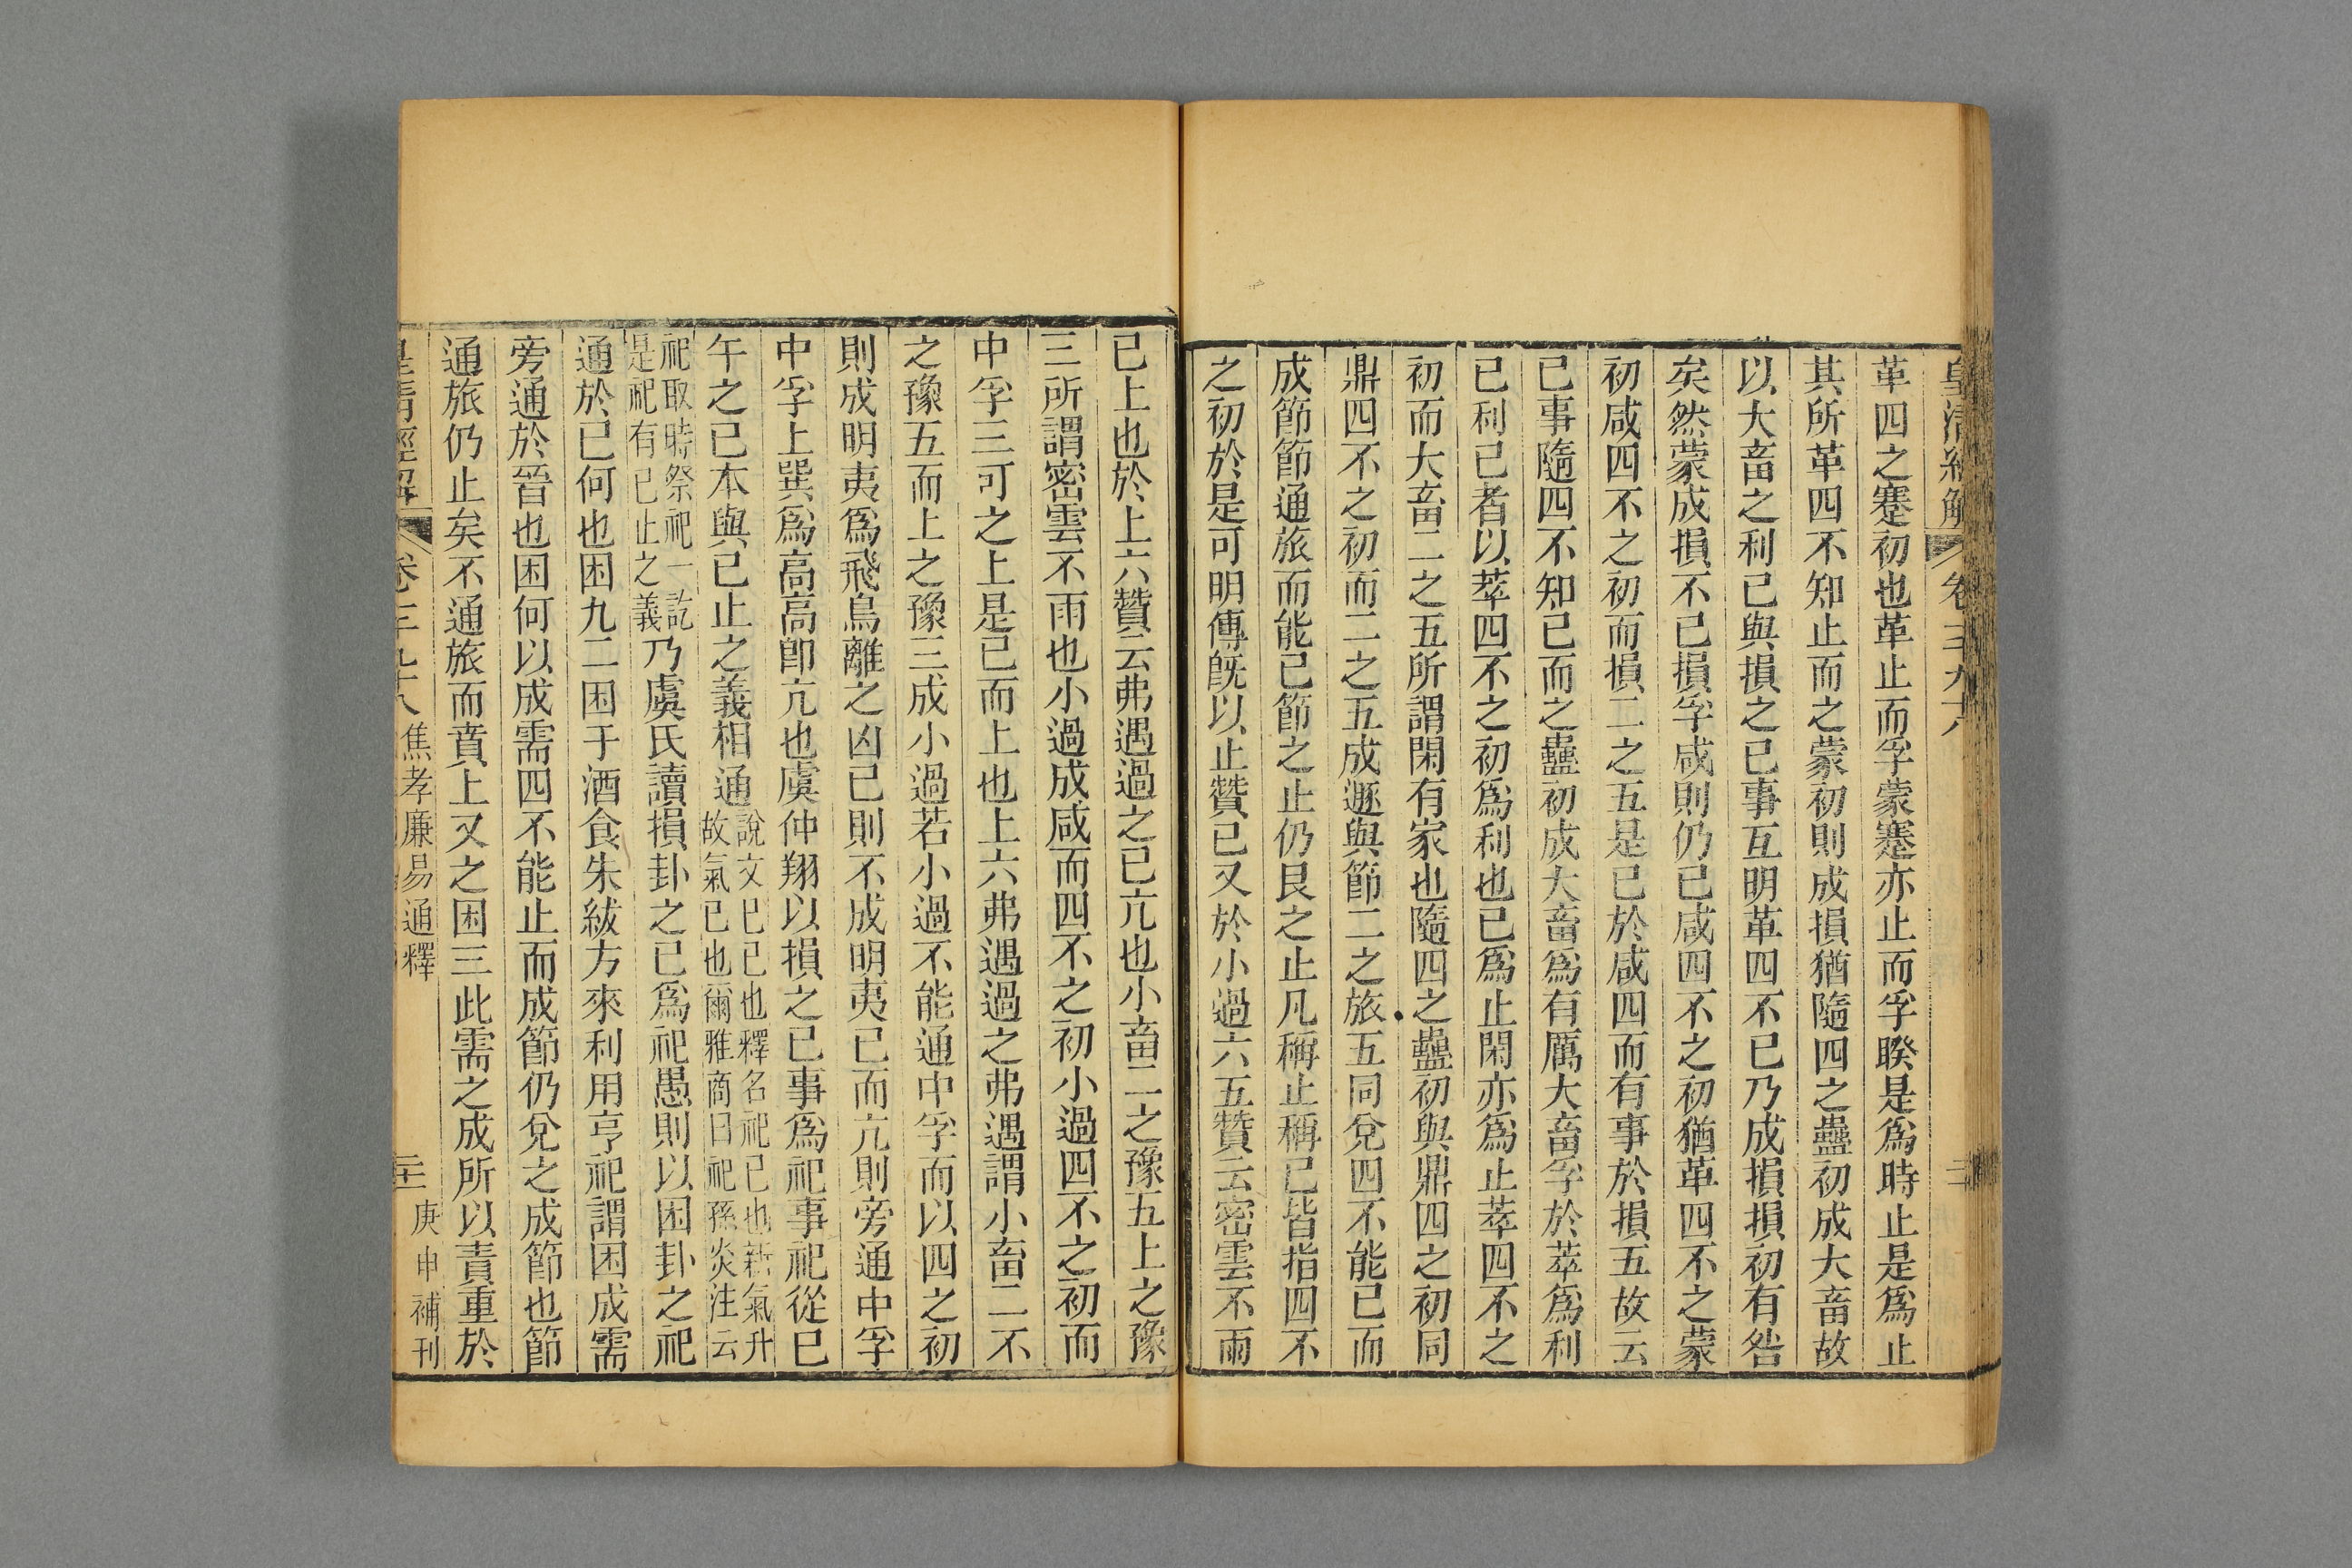 皇清經解 卷三百九十八
革四之蹇初也革止而孚蒙蹇亦止而孚睽是爲時止是爲止
其所革四不知止而之蒙初則成損猶隨四之蠱初成大畜故
以大畜之利已與損之已事互明革四不已乃成損損初有咎
矣然蒙成損不已損孚咸則仍已咸四不之初猶革四不之蒙
初咸四不之初而損二之五是已於咸四而有事於損五故云
已事隨四不知已而之蠱初成大畜爲有厲大畜孚於萃爲利
已利已者以萃四不之初爲利也已爲止閑亦爲止萃四不之
初而大畜二之五所謂閑有家也隨四之蠱初與鼎四之初同
鼎四不之初而二之五成遯與節二之旅五同兌四不能已而
成節節通旅而能已節之止仍艮之止凡稱止稱已皆指四不
之初於是可明傳旣以止贊已又於小過六五贊云密雲不雨
已上也於上六贊云弗遇過之已亢也小畜二之豫五上之豫
三所謂密雲不雨也小過成咸而四不之初小過四不之初而
中孚三可之上是已而上也上六弗遇過之弗遇謂小畜二不
之豫五而上之豫三成小過若小過不能通中孚而以四之初
則成明夷爲飛鳥離之凶已則不成明夷已而亢則旁通中孚
中孚上巽爲高高卽亢也虞仲翔以損之已事爲祀事祀從巳
午之巳本與已止之義相通
說文巳已也釋名祀已也新氣升
故氣已也爾雅商曰祀孫炎注云
祀取時祭祀一訖
是祀有已止之義
乃虞氏讀損卦之已爲祀愚則以困卦之祀
通於已何也困九二困于酒食朱紱方來利用亨祀謂困成需
旁通於晉也困何以成需四不能止而成節仍兌之成節也節
通旅仍止矣不通旅而賁上又之困三此需之成所以責重於
皇清經解 卷三百九十八 焦孝廉易通釋 庚申補刊